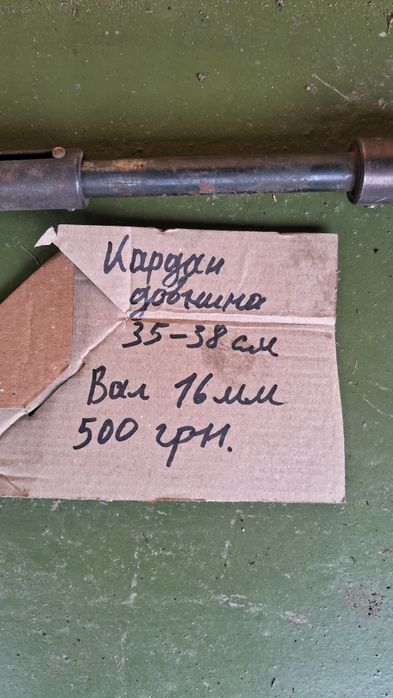 Кардан
довжина
35-38 см
Вал 16 мм
500 грн.